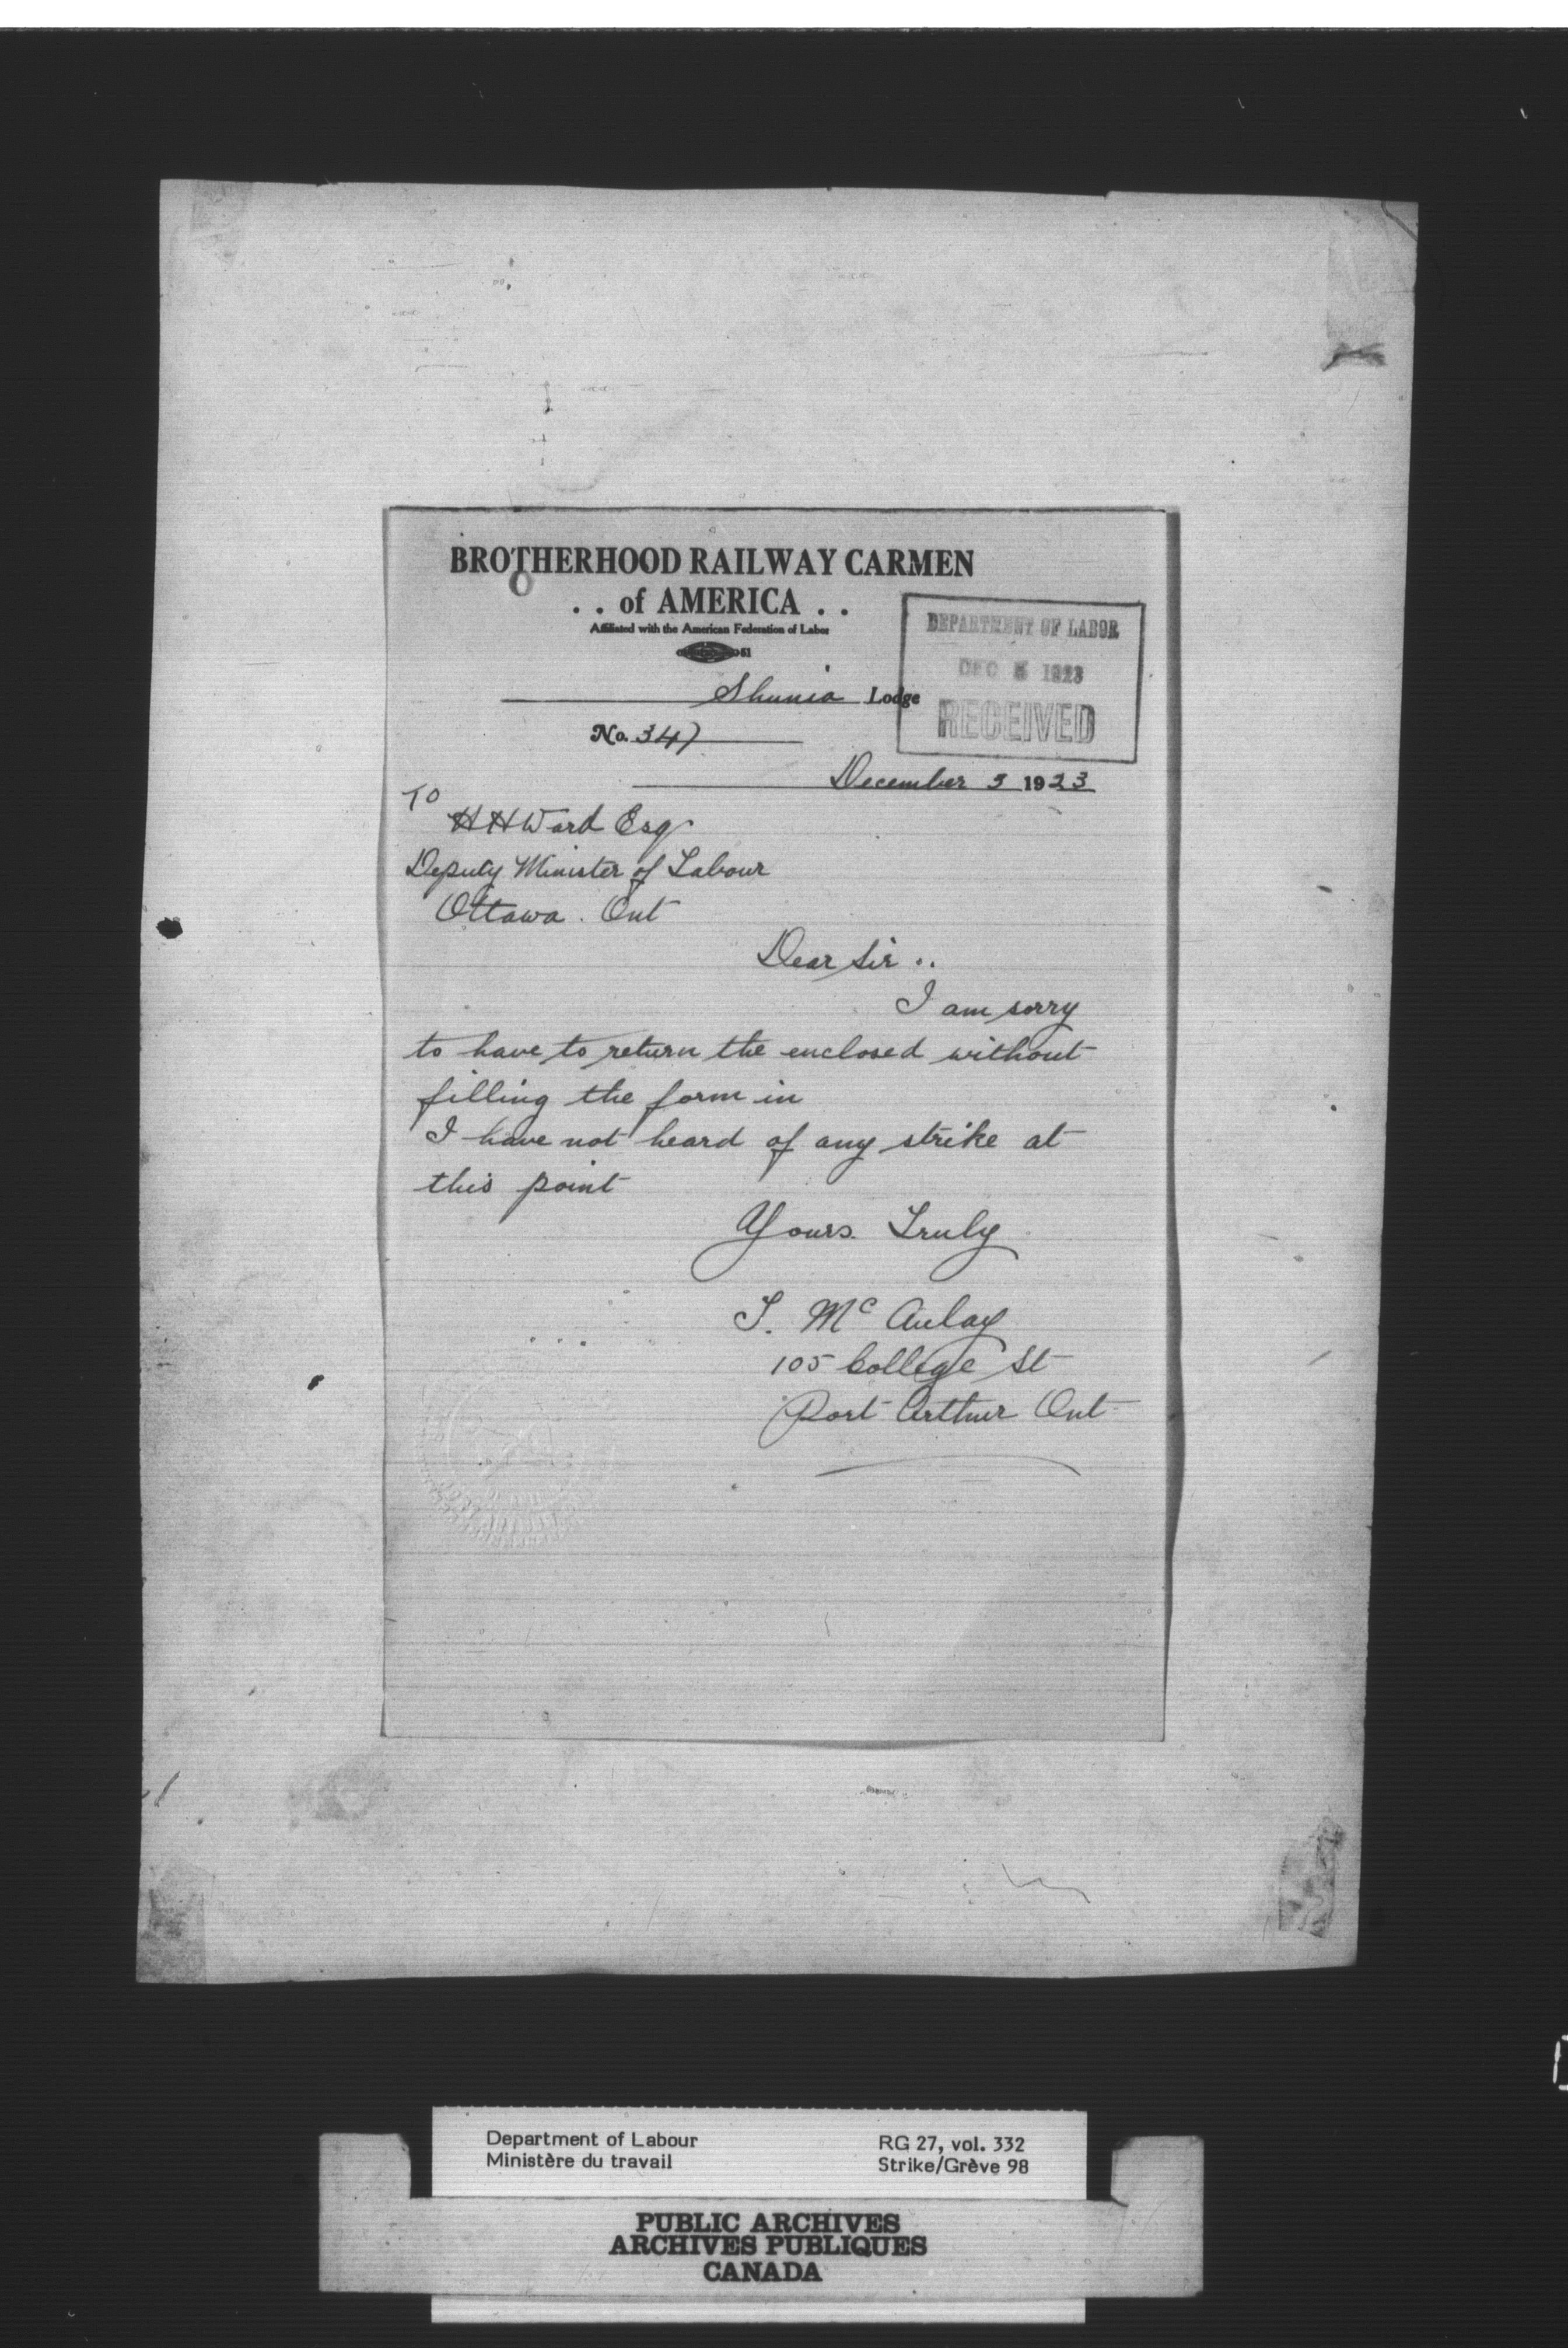 BROTHERHOOD RAILWAY CARMEN
. . of AMERICA . .
Affiliated with the American Federation of Labor
DEPARTMENT OF LABOR
DEC 5 1923
RECEIVED
Shunia Lodge
No. 347
December 3 1923
To
H H Ward Esq
Deputy Minister of Labour
Ottawa. Ont
Dear Sir ..
I am sorry
to have to return the enclosed without
filling the form in
I have not heard of any strike at
this point
Yours Truly
T. Mc Aulay
105 College St
Port Arthur Ont
Department of Labour
Ministère du travail
RG 27, vol. 332
Strike/Grève 98
PUBLIC ARCHIVES
ARCHIVES PUBLIQUES
CANADA